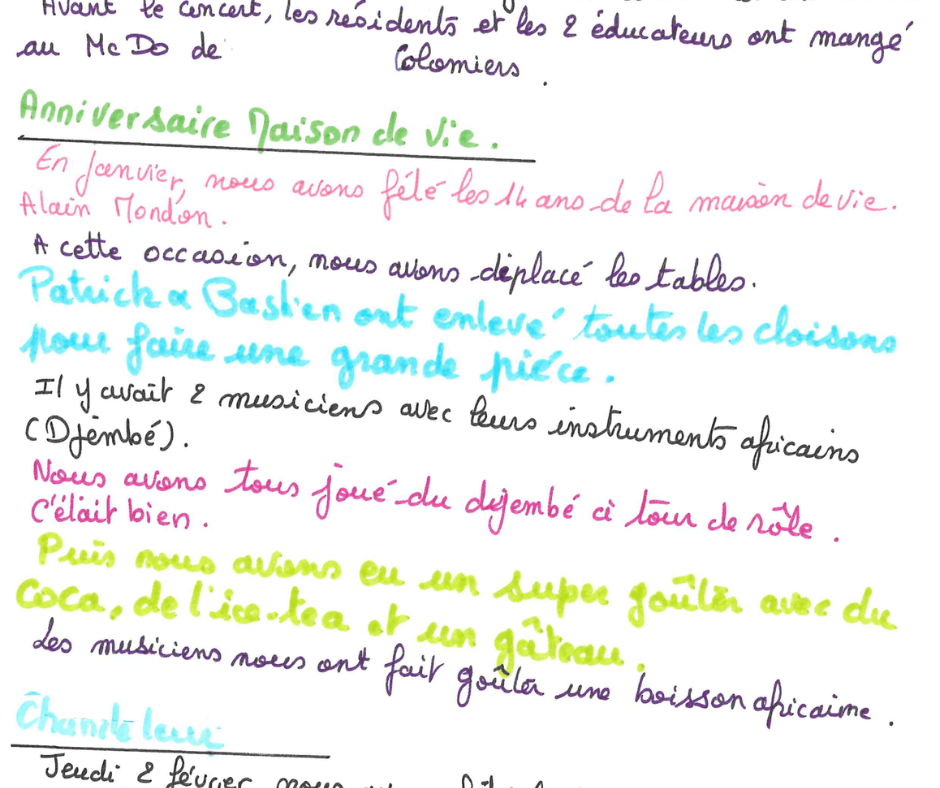 Avant le concert, les résidents et les 2 éducateurs ont mangé
au McDo de Colomiers.
Anniversaire Maison de vie.
En Janvier, nous avons fêté les 14 ans de la maison de vie.
Alain Mondon.
A cette occasion, nous avons déplacé les tables.
Patrick & Bastien ont enlevé toutes les cloisons
pour faire une grande pièce.
Il y avait 2 musiciens avec leurs instruments africains
(Djembé).
Nous avons tous joué du dijembé à tour de rôle.
C'était bien.
Puis nous avons eu un super goûter avec du
Coca, de l'ice-tea et un gâteau.
Les musiciens nous ont fait goûter une boisson africaime.
Chandeleur
Jeudi 2 février nous